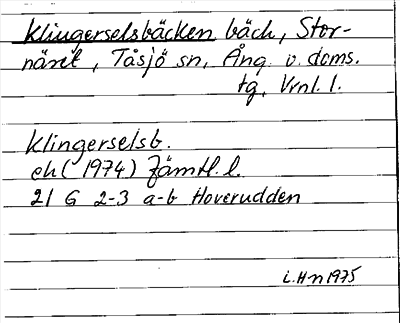 Klingerselsbäcken bäck, Stor-
näset, Tåsjö sn, Ång. v. doms.
tg, Vrnl. l.
Klingerselsb.
ek (1974) Jämtl. l.
21 G 2-3 a-b Hoverudden
L.Hn 1975